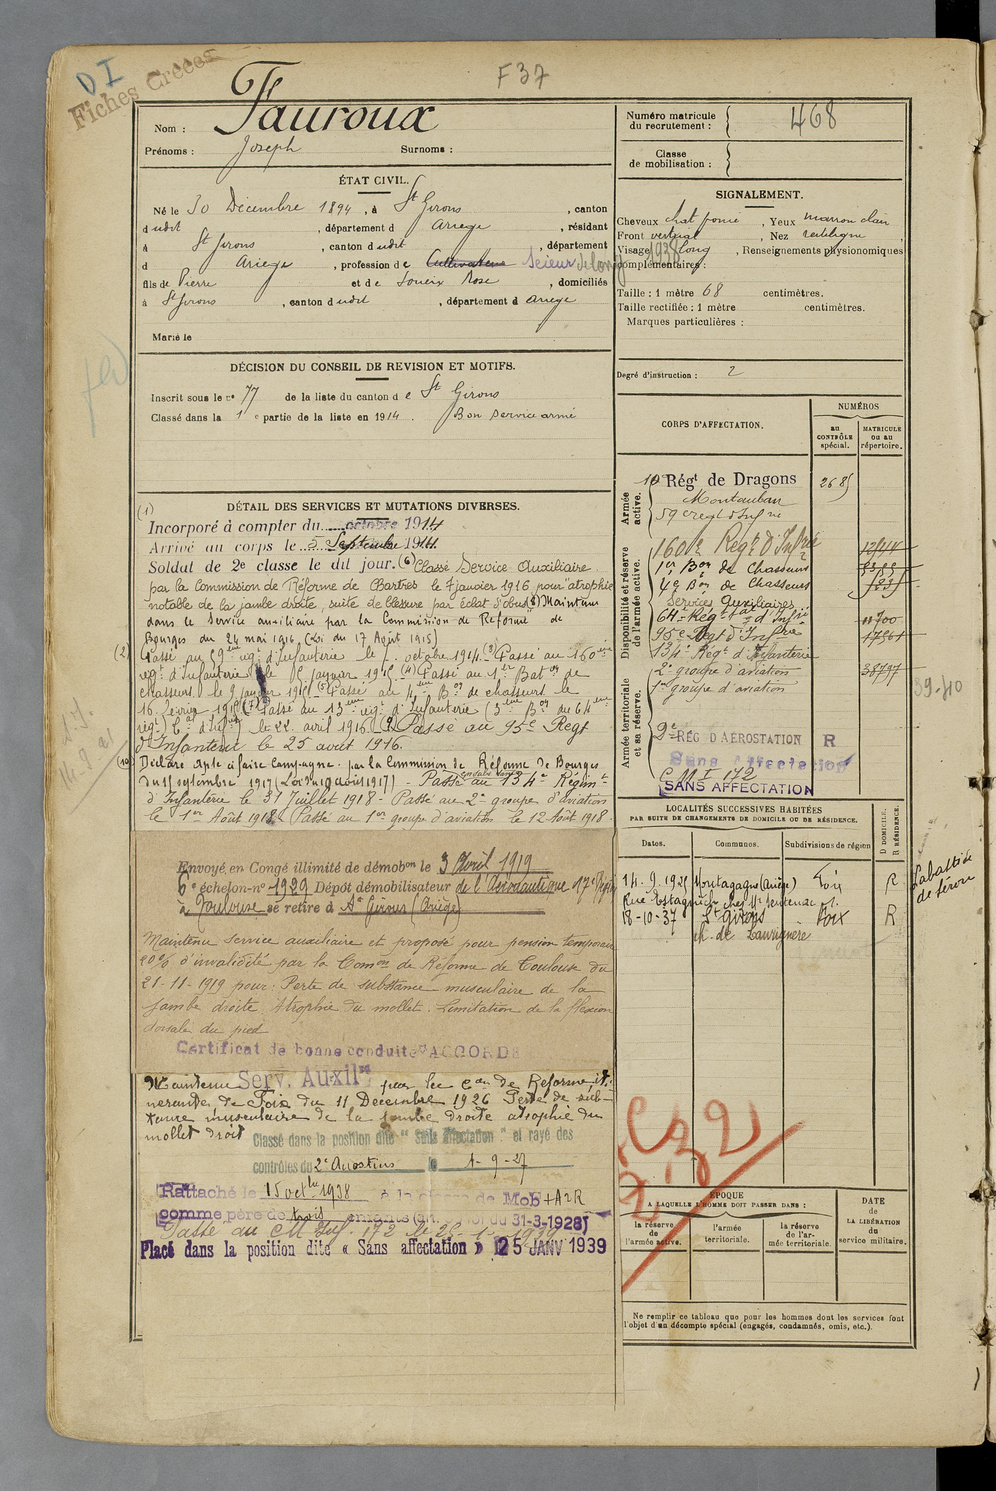 D I
Fiches Créées
F 37
Nom : Fauroux
Prénoms : Joseph Surnoms :
Numéro matricule du recrutement : 468
Classe de mobilisation :
ÉTAT CIVIL.
Né le 30 Décembre 1894, à St Girons, canton
dudit, département d Ariège, résidant
à St Girons, canton dudit, département
d Ariège, profession de Cultivateur Scieur de long
fils de Pierre et de Soueix Rose, domiciliés
à St Girons, canton dudit, département d Ariège
Marié le
SIGNALEMENT.
Cheveux chat foncé, Yeux marron clair
Front vertical, Nez rectiligne
Visage long, Renseignements physionomiques
complémentaires :
1938
Taille : 1 mètre 68 centimètres.
Taille rectifiée : 1 mètre centimètres.
Marques particulières :
Degré d'instruction : 2
DÉCISION DU CONSEIL DE REVISION ET MOTIFS.
Inscrit sous le n° 77 de la liste du canton de St Girons
Classé dans la 1e partie de la liste en 1914. Bon service armé
DÉTAIL DES SERVICES ET MUTATIONS DIVERSES.
(1)
Incorporé à compter du octobre 1914
Arrivé au corps le 5 Septembre 1914
Soldat de 2e classe le dit jour. (6) Classé Service Auxiliaire
par la Commission de Réforme de Chartres le 7 janvier 1916 pour "atrophie
notable de la jambe droite, suite de blessure par éclat d'obus (8) Maintenu
dans le Service auxiliaire par la Commission de Réforme de
Bourges du 24 mai 1916 (Loi du 17 Août 1915)
(2) Passé au 59ème régt d'Infanterie le octobre 1914. (3) Passé au 160ème
régt d'Infanterie le janvier 1915 (4) Passé au 1er Baton de
chasseurs le 9 janvier 1915 (5) Passé au 4ème Bon de chasseurs le
16 février 1915 (7) Passé au 13ème régt d'Infanterie (3ème Bon du 64ème
régt tal d'Infie) le 22 avril 1916. (9) Passé au 95e Régt
d'Infanterie le 25 août 1916.
(10) Déclaré apte à faire campagne par la Commission de Réforme de Bourges
du 1er septembre 1917 (Loi du 19 août 1917) - Passé au 134e Régimt
d'Infanterie le 31 Juillet 1918 - Passé au 2e groupe d'aviation
le 1er Août 1918. Passé au 1er groupe d'aviation le 12 Août 1918
Envoyé en Congé illimité de démobon le 3 Avril 1919
6e échelon-n° 1929 Dépôt démobilisateur de l'Aéronautique 17e Région
à Toulouse se retire à St Girons (Ariège)
Maintenu service auxiliaire et proposé pour pension temporaire
20% d'invalidité par la Comon de Réforme de Toulouse du
21-11-1919 pour : Perte de substance musculaire de la
jambe droite. Atrophie du mollet. Limitation de la flexion
dorsale du pied
Certificat de bonne conduite "ACCORDÉ
Maintenu Serv. Auxil par la Con de Réforme iti-
nérante de Foix du 11 Décembre 1926 Perte de subs-
tance musculaire de la jambe droite atrophie du
mollet droit
Classé dans la position dite " Sans affectation " et rayé des
contrôles du 2e Aérostiers le 1-9-27
Rattaché le 15 octbre 1938 à la classe de Mob + A2R
comme père de trois enfants du 31-3-1928)
Passé au CM Inf. 172 le
Placé dans la position dite « Sans affectation » le 25 JANV 1939
CORPS D'AFFECTATION.
NUMÉROS
au CONTRÔLE spécial.
MATRICULE ou au répertoire.
Armée active.
10e Régt de Dragons 2685
Montauban
59e regt d'Infrie
Disponibilité et réserve de l'armée active.
160e Regt d'Infrie
1er Bon de Chasseurs
4e Bon de Chasseurs
Services Auxiliaires
64e Régt tal d'Infie 11700
95e Régt d'Infrie 17561
134e Régt d'Infanterie
2e groupe d'aviation 38797
1er groupe d'aviation
39-40
Armée territoriale et sa réserve.
2e RÉG D'AÉROSTATION R
Sans Affectation
C M I 172
SANS AFFECTATION
LOCALITÉS SUCCESSIVES HABITÉES
PAR SUITE DE CHANGEMENTS DE DOMICILE OU DE RÉSIDENCE.
Dates. Communes. Subdivisions de région
D DOMICILE. R RÉSIDENCE.
14-9-1925 Montagagne (Ariège) Foix R
18-10-37 St Girons Foix R
ch. de
ÉPOQUE
A LAQUELLE L'HOMME DOIT PASSER DANS :
la réserve de l'armée active.
l'armée territoriale.
la réserve de l'armée territoriale.
DATE
de
LA LIBÉRATION
du
service militaire.
Ne remplir ce tableau que pour les hommes dont les services font
l'objet d'un décompte spécial (engagés, condamnés, omis, etc.).